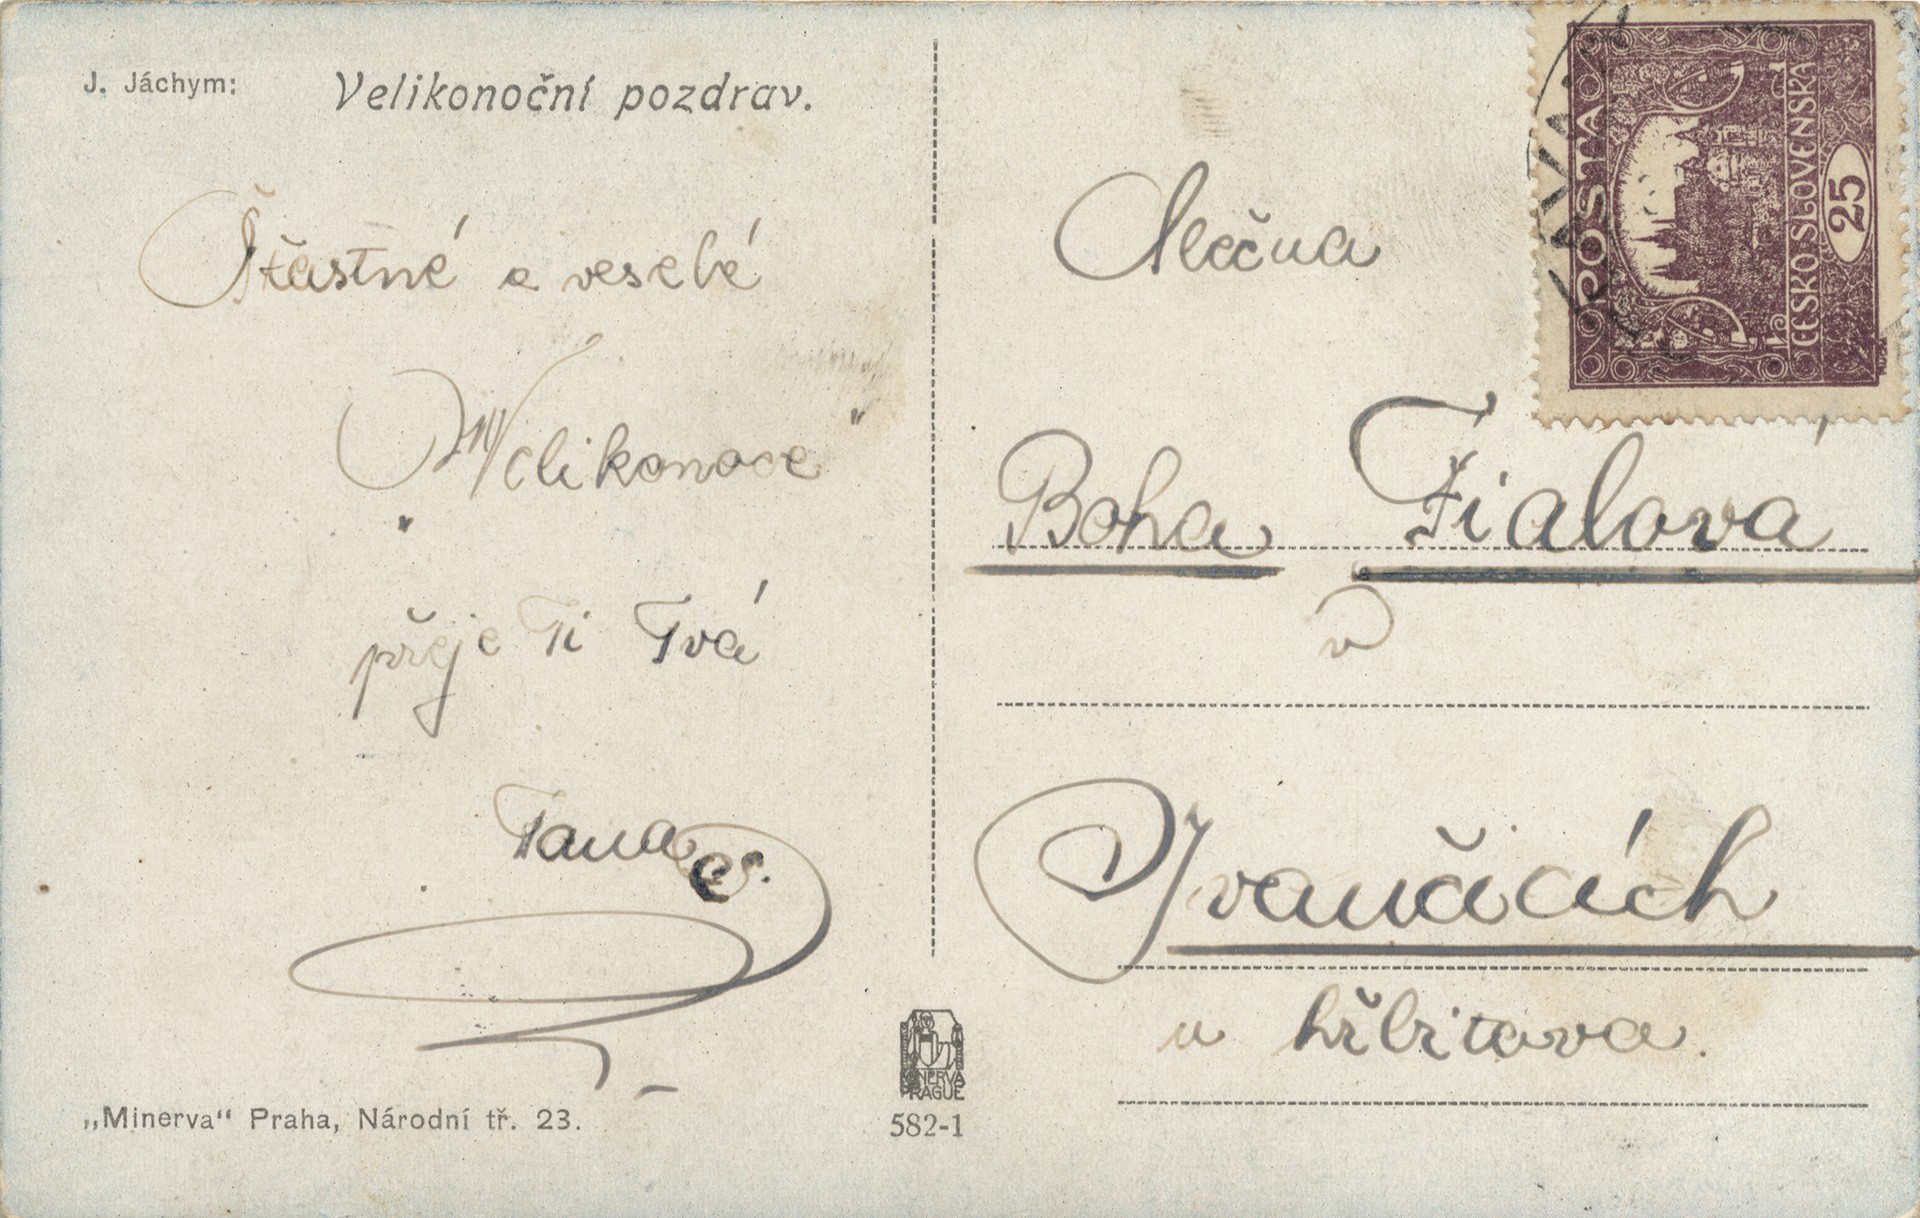 J. Jáchym: Velikonoční pozdrav.
Šťastné a veselé
„Velikonoce"
přeje Ti Tvá
Slečna
Boha Fialová
v
Ivančicích
u hřbitova.
POŠTA
ČESKO-SLOVENSKÁ
25
MINERVA
PRAGUE
582-1
„Minerva“ Praha, Národní tř. 23.